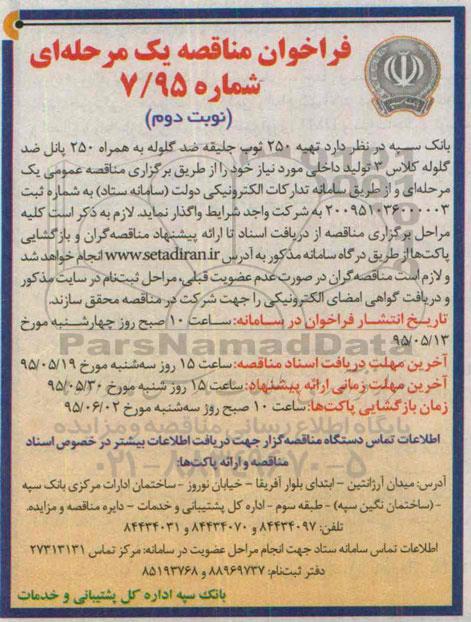 فراخوان مناقصه یک مرحله‌ای
شماره ۷/۹۵
(نوبت دوم)
بانک سپه در نظر دارد تهیه ۲۵۰ ثوب جلیقه ضد گلوله به همراه ۲۵۰ پانل ضد
گلوله کلاس ۳ تولید داخلی مورد نیاز خود را از طریق برگزاری مناقصه عمومی یک
مرحله‌ای و از طریق سامانه تدارکات الکترونیکی دولت (سامانه ستاد) به شماره ثبت
به شرکت واجد شرایط واگذار نماید. لازم به ذکر است کلیه
مراحل برگزاری مناقصه از دریافت اسناد تا ارائه پیشنهاد مناقصه‌گران و بازگشایی
پاکت‌ها از طریق درگاه سامانه مذکور به آدرس www.setadiran.ir انجام خواهد شد
و لازم است مناقصه‌گران در صورت عدم عضویت قبلی، مراحل ثبت‌نام در سایت مذکور
و دریافت گواهی امضای الکترونیکی را جهت شرکت در مناقصه محقق سازند.
تاریخ انتشار فراخوان در سامانه: ساعت ۱۰ صبح روز چهارشنبه مورخ
۹۵/۰۵/۱۳
آخرین مهلت دریافت اسناد مناقصه: ساعت ۱۵ روز سه‌شنبه مورخ ۹۵/۰۵/۱۹
آخرین مهلت زمانی ارائه پیشنهاد: ساعت ۱۵ روز شنبه مورخ ۹۵/۰۵/۳۰
زمان بازگشایی پاکت‌ها: ساعت ۱۰ صبح روز سه‌شنبه مورخ ۹۵/۰۶/۰۲
اطلاعات تماس دستگاه مناقصه‌گزار جهت دریافت اطلاعات بیشتر در خصوص اسناد
مناقصه و ارائه پاکت‌ها:
آدرس: میدان آرژانتین - ابتدای بلوار آفریقا - خیابان نوروز - ساختمان ادارات مرکزی بانک سپه
- (ساختمان نگین سپه) - طبقه سوم - اداره کل پشتیبانی و خدمات - دایره مناقصه و مزایده.
تلفن: ۸۴۴۳۴۰۹۷ و ۸۴۴۳۴۰۷۰ و ۸۴۴۳۴۰۳۱
اطلاعات تماس سامانه ستاد جهت انجام مراحل عضویت در سامانه: مرکز تماس ۲۷۳۱۳۱۳۱
دفتر ثبت‌نام: ۸۸۹۶۹۷۳۷ و ۸۵۱۹۳۷۶۸
بانک سپه اداره کل پشتیبانی و خدمات
ParsNamadData
پایگاه اطلاع رسانی مناقصه و مزایده